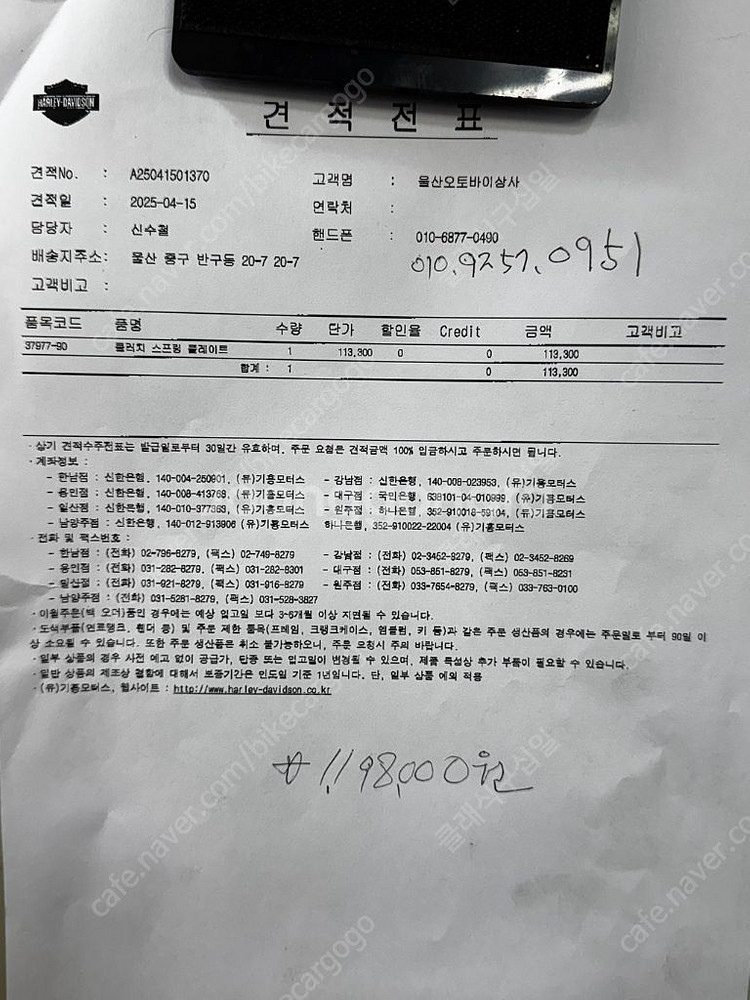 HARLEY-DAVIDSON
견 적 전 표
견적No. : A25041501370
고객명 : 울산오토바이상사
견적일 : 2025-04-15
연락처 :
담당자 : 신수철
핸드폰 : 010-6877-0490
배송지주소: 울산 중구 반구동 20-7 20-7
010.9257.0951
고객비고 :
품목코드 품명 수량 단가 할인율 Credit 금액 고객비고
37977-90 클러치 스프링 플레이트 1 113,300 0 0 113,300
합계 : 1 0 113,300
· 상기 견적수주전표는 발급일로부터 30일간 유효하며, 주문 요청은 견적금액 100% 입금하시고 주문하시면 됩니다.
· 계좌정보 :
- 한남점 : 신한은행, 140-004-250901, (유)기흥모터스 - 강남점 : 신한은행, 140-008-023953, (유)기흥모터스
- 용인점 : 신한은행, 140-008-413768, (유)기흥모터스 - 대구점 : 국민은행, 638101-04-010999, (유)기흥모터스
- 일산점 : 신한은행, 140-010-377363, (유)기흥모터스 - 원주점 : 하나은행, 352-910018-59104, (유)기흥모터스
- 남양주점 : 신한은행, 140-012-913906 (유)기흥모터스 하나은행, 352-910022-22004 (유)기흥모터스
· 전화 및 팩스번호 :
- 한남점 : (전화) 02-796-8279, (팩스) 02-749-8279 - 강남점 : (전화) 02-3452-9279, (팩스) 02-3452-8269
- 용인점 : (전화) 031-282-8279, (팩스) 031-282-8301 - 대구점 : (전화) 053-851-8279, (팩스) 053-851-8231
- 일산점 : (전화) 031-921-8279, (팩스) 031-916-8279 - 원주점 : (전화) 033-7654-8279, (팩스) 033-763-0100
- 남양주점 : (전화) 031-5281-8279, (팩스) 031-528-3827
· 이월주문(백 오더)품인 경우에는 예상 입고일 보다 3-6개월 이상 지연될 수 있습니다.
· 도색부품(연료탱크, 휀더 등) 및 주문 제한 품목(프레임, 크랭크케이스, 엠블럼, 키 등)과 같은 주문 생산품의 경우에는 주문일로 부터 90일 이
상 소요될 수 있습니다. 또한 주문 생산품은 취소 불가능하오니, 주문 요청시 주의 바랍니다.
· 일부 상품의 경우 사전 예고 없이 공급가, 단종 또는 입고일이 변경될 수 있으며, 제품 특성상 추가 부품이 필요할 수 있습니다.
· 일반 상품의 제조상 결함에 대해서 보증기간은 인도일 기준 1년입니다. 단, 일부 상품 예외 적용
· (유)기흥모터스, 웹사이트 : http://www.harley-davidson.co.kr
₩1,198,000원
cafe.naver.com/bikecargogo
클래식구십일